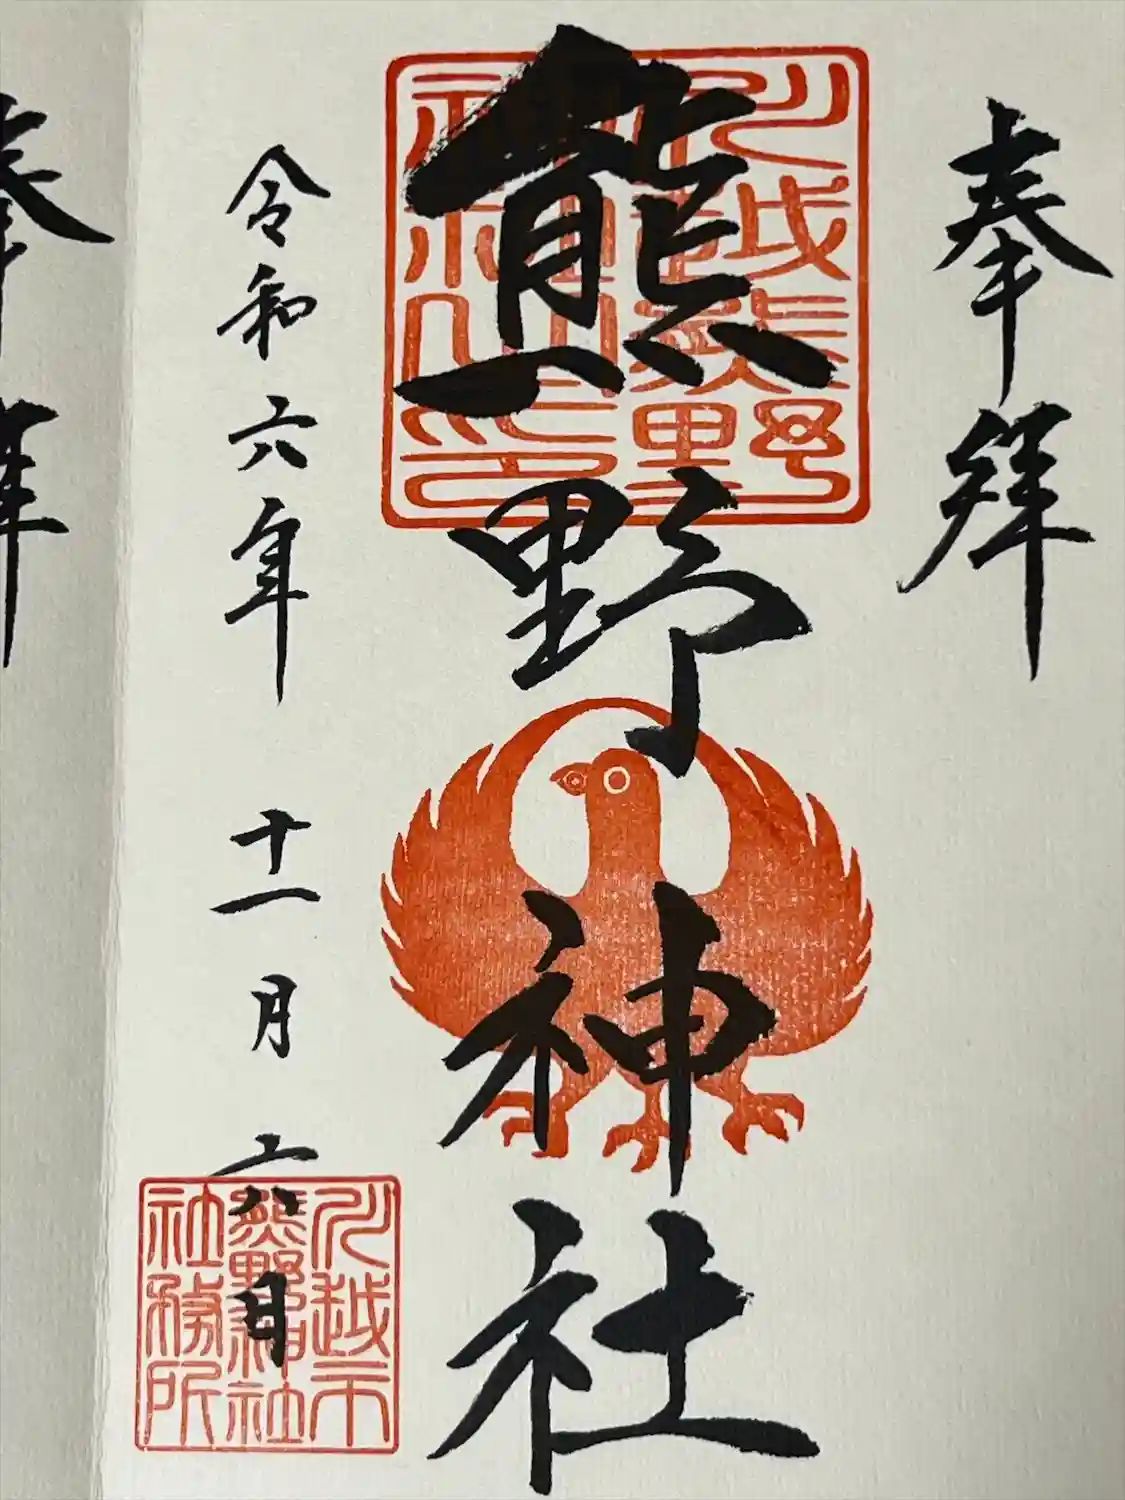 奉拝
川越熊野
神社之印
熊野神社
令和六年 十一月 六日
川越市
熊野神社
社務所
奉拝